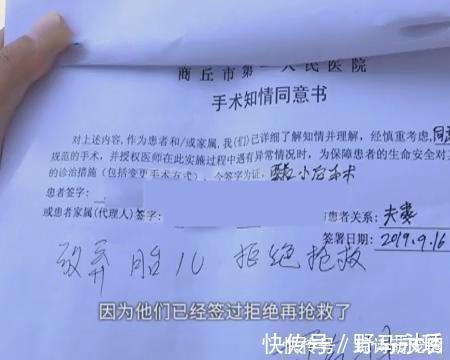 商丘市第一人民医院
手术知情同意书
对上述内容,作为患者和/或家属,我(们)已详细了解知情并理解,经慎重考虑,同意
规范的手术,并授权医师在此实施过程中遇有异常情况时,为保障患者的生命安全对
的诊治措施(包括变更手术方式)。今签字为证,
患者签字:
或患者家属(代理人)签字: 与患者关系:夫妻
签署日期:2019.9.16
放弃 胎儿 拒绝抢救
因为他们已经签过拒绝再抢救了
快传号